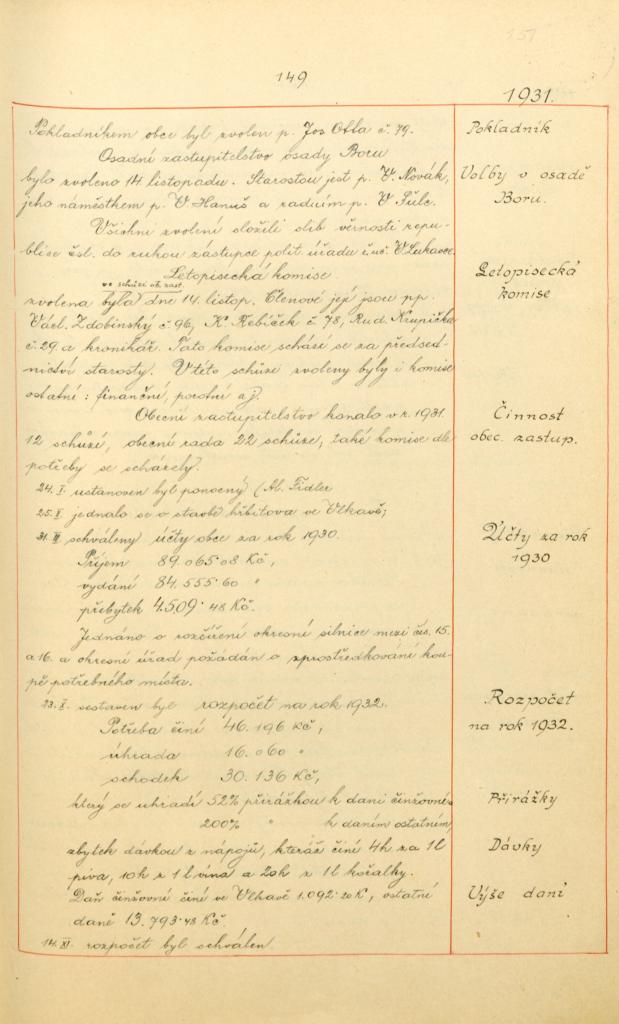 149
1931.
Pokladníkem obce byl zvolen p. Jos Otta č. 79.
Pokladník
Osadní zastupitelstvo osady Boru
bylo zvoleno 14. listopadu. Starostou jest p. V. Novák,
Volby v osadě
jeho náměstkem p. V Hanuš a radním p. V. Šulc.
Boru.
Všichni zvolení složili slib věrnosti repu-
blice čsl. do rukou zástupce polit. úřadu
Letopisecká komise
Letopisecká
komise
ve schůzi ob. zast.
zvolena byla dne 14. listop. Členové její jsou pp.
Václ. Zdobinský č. 96, K. Řebíček č. 78, Rud. Krupička
č. 29. a kronikář. Tato komise schází se za předsed-
nictví starosty. V této schůzi zvoleny byly i komise
ostatní: finanční, porotní aj.
Obecní zastupitelstvo konalo v r. 1931.
Činnost
12 schůzí, obecní rada 22 schůze, také komise dle
obec. zastup.
potřeby se scházely.
24. I. ustanoven byl ponocný (Al. Fidler
jednalo se o stavbě hřbitova ve Vlkavě;
schváleny účty obce za rok 1930.
Účty za rok
1930
Příjem 89.065.08 Kč,
vydání 84.555.60 "
přebytek 4.509.48 Kč.
Jednáno o rozšíření okresní silnice mezi čís. 15.
a 16. a okresní úřad požádán o zprostředkování kou-
pě potřebného místa.
23. X. sestaven byl rozpočet na rok 1932.
Rozpočet
na rok 1932.
Potřeba činí 46.196 Kč,
úhrada 16.060 "
schodek 30.136 Kč,
který se uhradí 52% přirážkou k dani činžovní
Přirážky
200% " k daním ostatním,
zbytek dávkou z nápojů, kteráž činí 4h za 1l
Dávky
piva, 10h z 1 l vína a 20h z 1l kořalky.
Daň činžovní činí ve Vlkavě 1.092.20 K, ostatní
Výše daní
daně 13.793.48 Kč.
14. XI. rozpočet byl schválen.